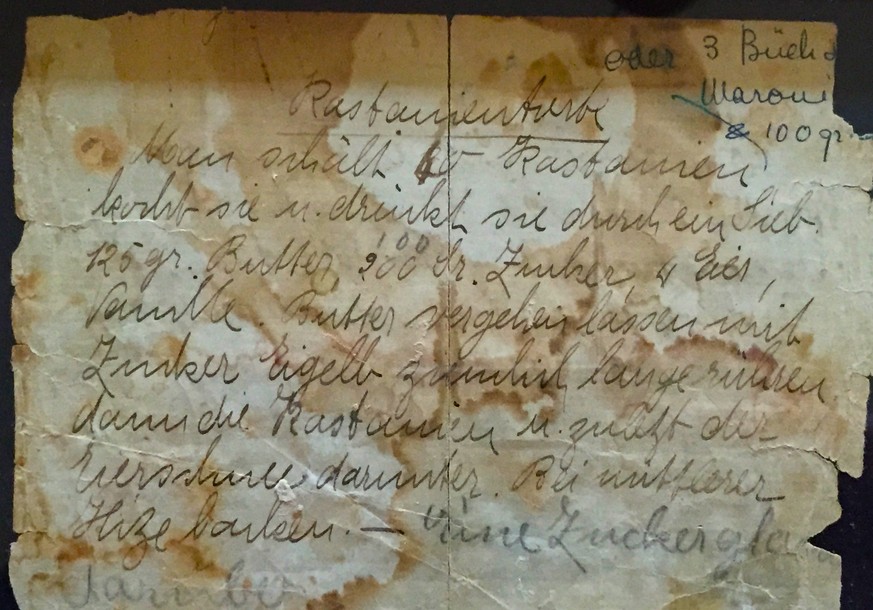 oder 3 Büch
Maroni
à 100 gr.
Kastanientorte
Man schält 40 Kastanien
kocht sie u. drückt sie durch ein Sieb.
125 gr. Butter, 200 Gr. Zucker, 4 Eier,
100
Vanille. Butter vergehen lassen mit
Zucker Eigelb ziemlich lange rühren,
dann die Kastanien u. zuletzt der
Eierschnee darunter. Bei mittlerer
Hize backen. — eine Zuckergla
darüber